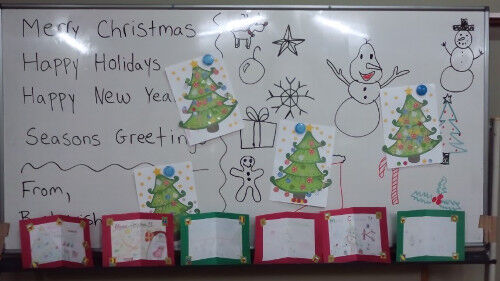 Merry Christmas
Happy Holidays
Happy New
Seasons
From,